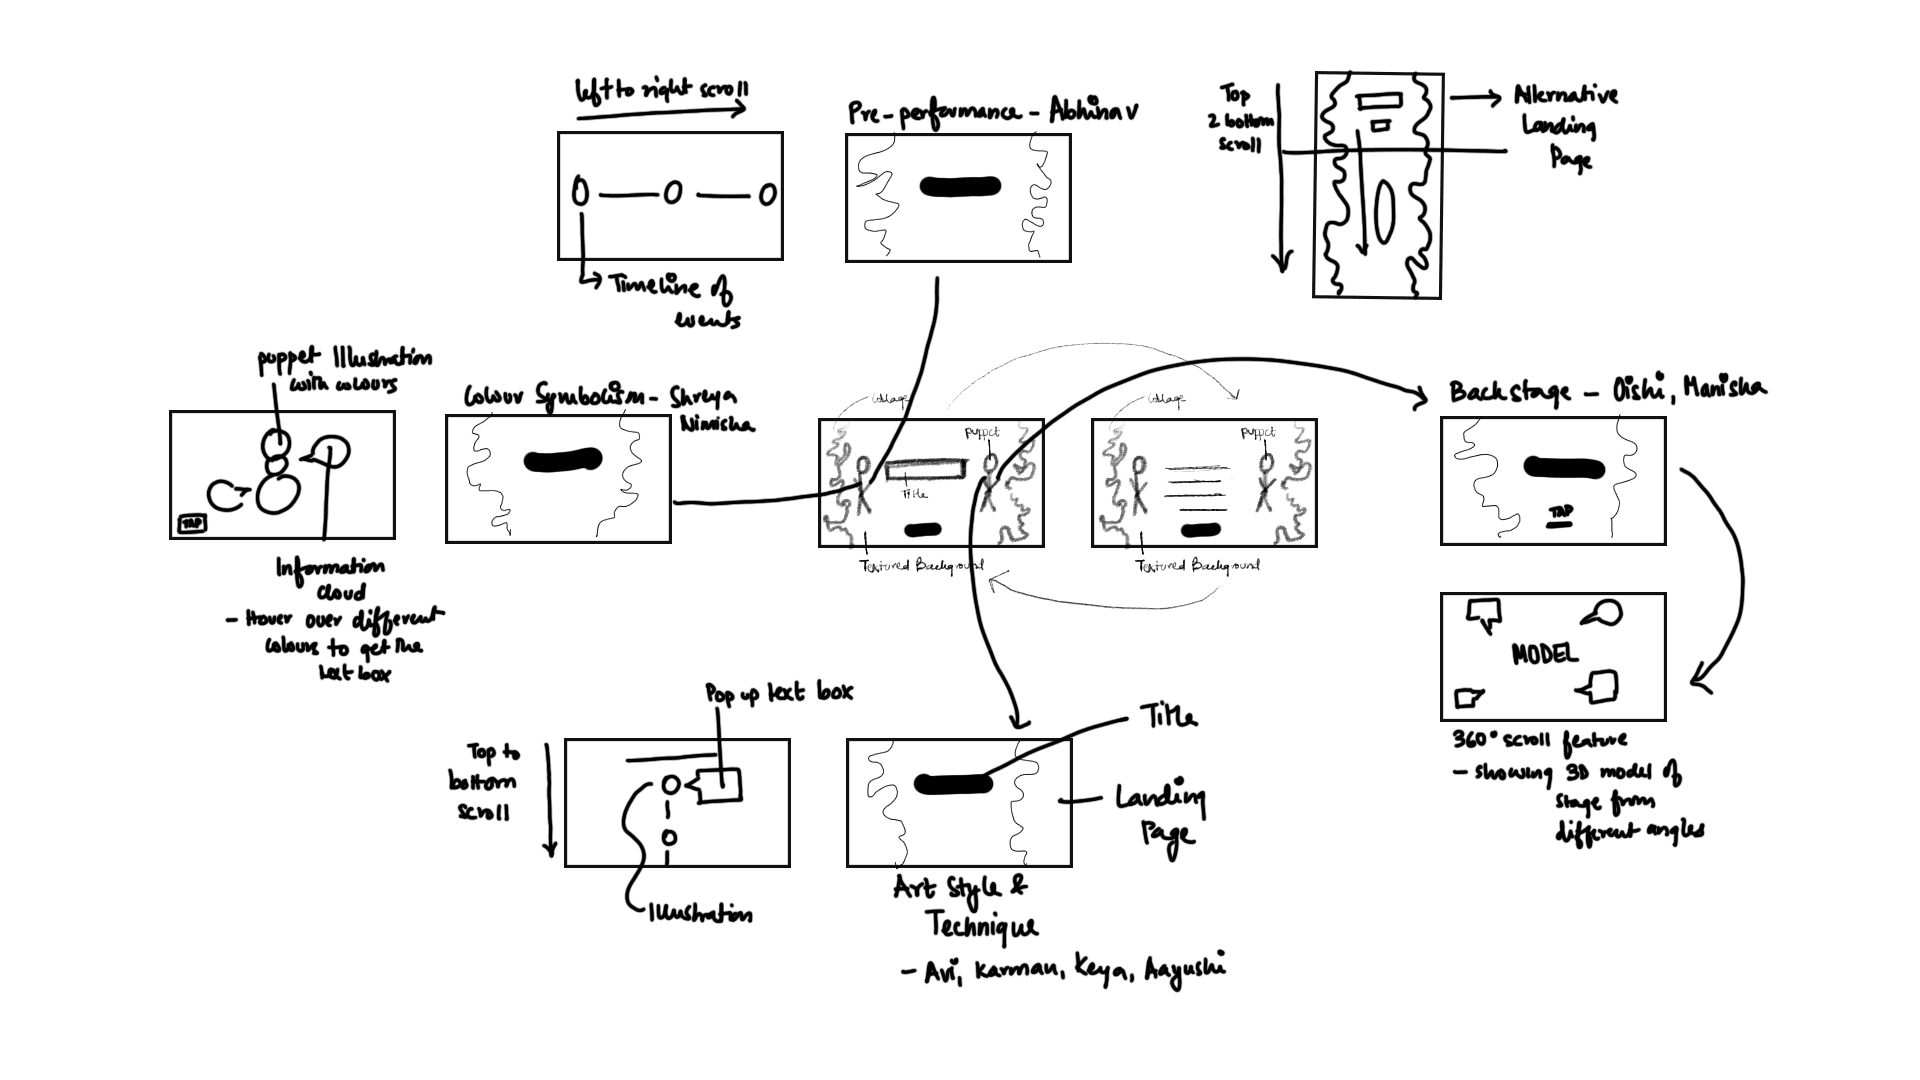 left to right scroll
Timeline of
events
Pre-performance - Abhinav
Top
2 bottom
scroll
Alternative
Landing
Page
puppet Illustration
with colours
TAP
Information
Cloud
- Hover over different
colours to get the
text box
Colour Symbolism - Shreya
Nimisha
Collage
puppet
Title
Textured Background
Collage
puppet
Textured Background
Backstage - Oishi, Manisha
TAP
MODEL
360° scroll feature
- showing 3D model of
stage from
different angles
Pop up text box
Top to
bottom
scroll
Illustration
Title
Landing
Page
Art Style &
Technique
- Avi, Karman, Keya, Aayushi